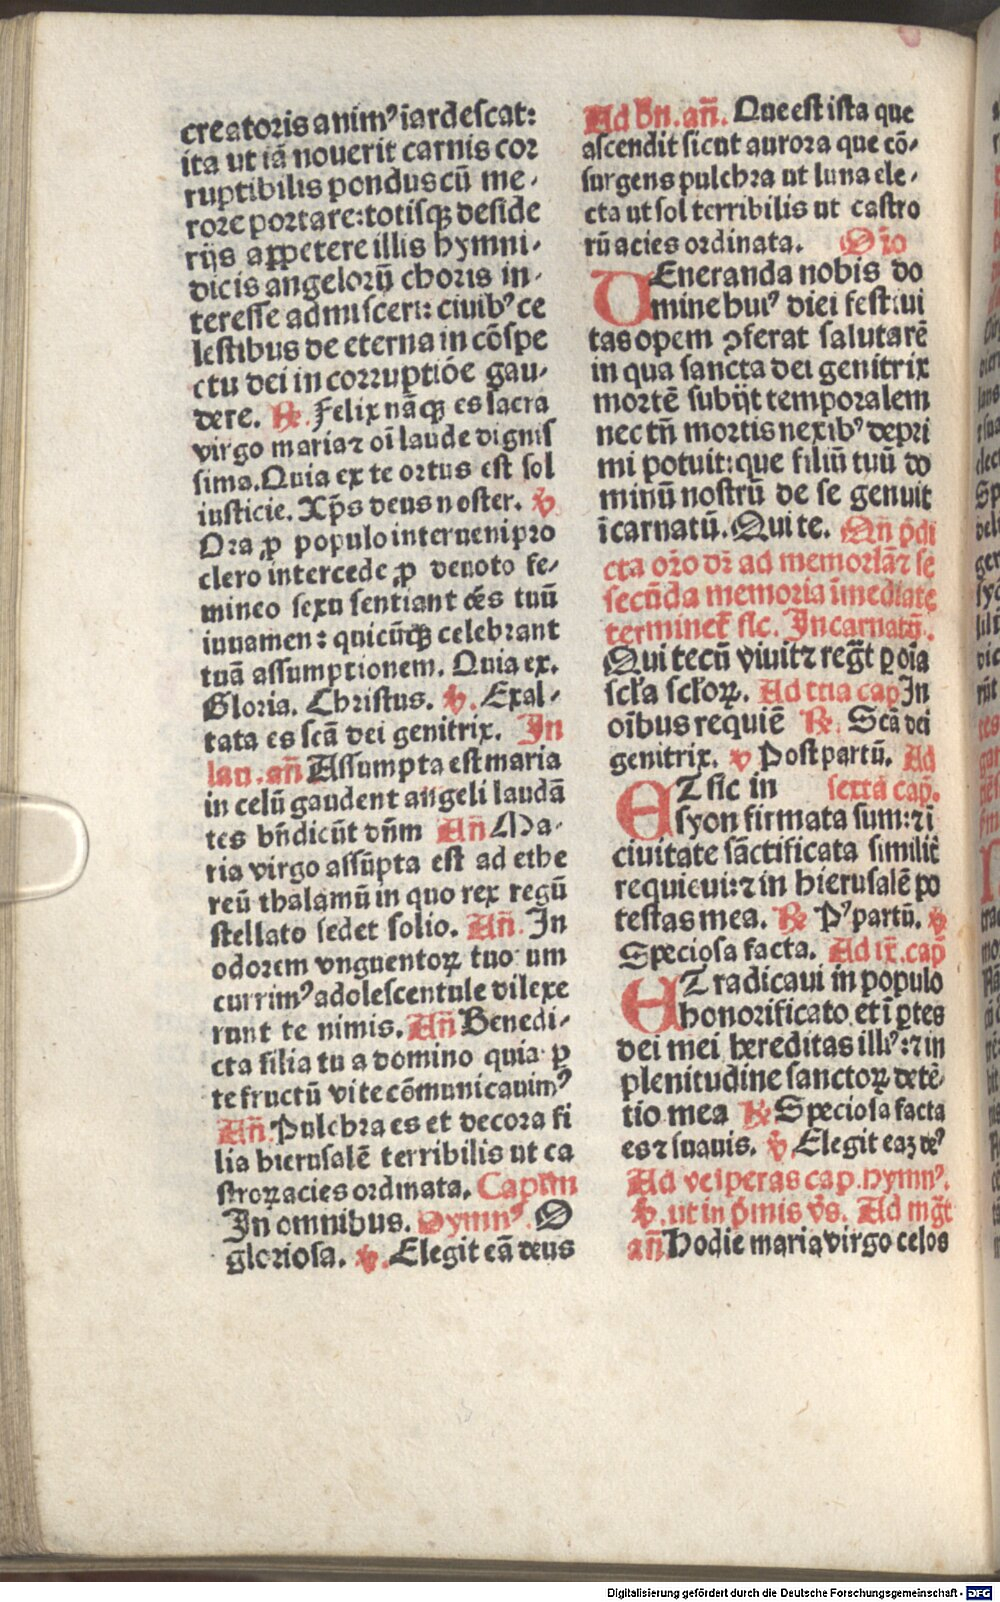 creatoris animꝰ iardescat:
ita ut iā nouerit carnis cor
ruptibilis pondus cū me-
rore portare: totisqꝫ deside
rijs appetere illis hymni-
dicis angelorū choris in-
teresse admisceri: ciuibꝰ ce
lestibus de eterna in cōspe
ctu dei in corruptiōe gau-
dere. ℟. Felix nāqꝫ es sacra
virgo maria ⁊ oī laude dignis
sima. Quia ex te ortus est sol
iusticie. Xp̄s deus noster. ℣
Ora ꝓ populo interueni pro
clero intercede ꝓ deuoto fe-
mineo sexu sentiant oēs tuū
iuuamen: quicūqꝫ celebrant
tuā assumptionem. Quia ex.
Gloria. Christus. ℣. Exal-
tata es scā dei genitrix. In
lau. añ Assumpta est maria
in celū gaudent angeli laudā
tes bn̄dicūt dn̄m Añ Ma-
ria virgo assūpta est ad ethe
reū thalamū in quo rex regū
stellato sedet solio. Añ. In
odorem vnguentoꝝ tuo um
currimꝰ adolescentule dilexe
runt te nimis. Añ Benedi-
cta filia tu a domino quia ꝑ
te fructū vite cōmunicauimꝰ
Añ. Pulchra es et decora fi
lia hierusalē terribilis ut ca
stroꝝ acies ordinata. Capl̄m
In omnibus. Hymnꝰ. O
gloriosa. ℣. Elegit eā deus
Ad bn̄. añ. Que est ista que
ascendit sicut aurora que cō-
surgens pulchra ut luna ele-
cta ut sol terribilis ut castro
rū acies ordinata. Or̄o
VEneranda nobis do
mine huiꝰ diei festiui
tas opem ꝯferat salutarē
in qua sancta dei genitrix
mortē subijt temporalem
nec tn̄ mortis nexibꝰ depri
mi potuit: que filiū tuū do
minū nostrū de se genuit
īcarnatū. Qui te. Qn̄ p̄di
cta or̄o dr̄ ad memoriā ⁊ se
secūda memoria īmediate
terminet̄ sic. Incarnatū.
Qui tecū viuit ⁊ regn̄t ꝑ oīa
scl̄a scl̄oꝝ. Ad tria cap In
oībus requiē ℟. Scā dei
genitrix. ℣ Post partū. Ad
ET sic in sexta cap̄.
syon firmata sum: ⁊ ī
ciuitate sāctificata similit̄
requieui: ⁊ in hierusalē po
testas mea. ℟ Pꝰ partū. ℣
Speciosa facta. Ad ix̄. cap̄
ET radicaui in populo
honorificato et ī ꝑtes
dei mei hereditas illiꝰ: ⁊ in
plenitudine sanctoꝝ detē-
tio mea ℟ Speciosa facta
es ⁊ suauis. ℣. Elegit eaꝫ deꝰ
Ad vesperas cap. hymnꝰ.
℣. ut in p̄mis vs̄. Ad mḡt
añ Hodie maria virgo celos
Digitalisierung gefördert durch die Deutsche Forschungsgemeinschaft - DFG